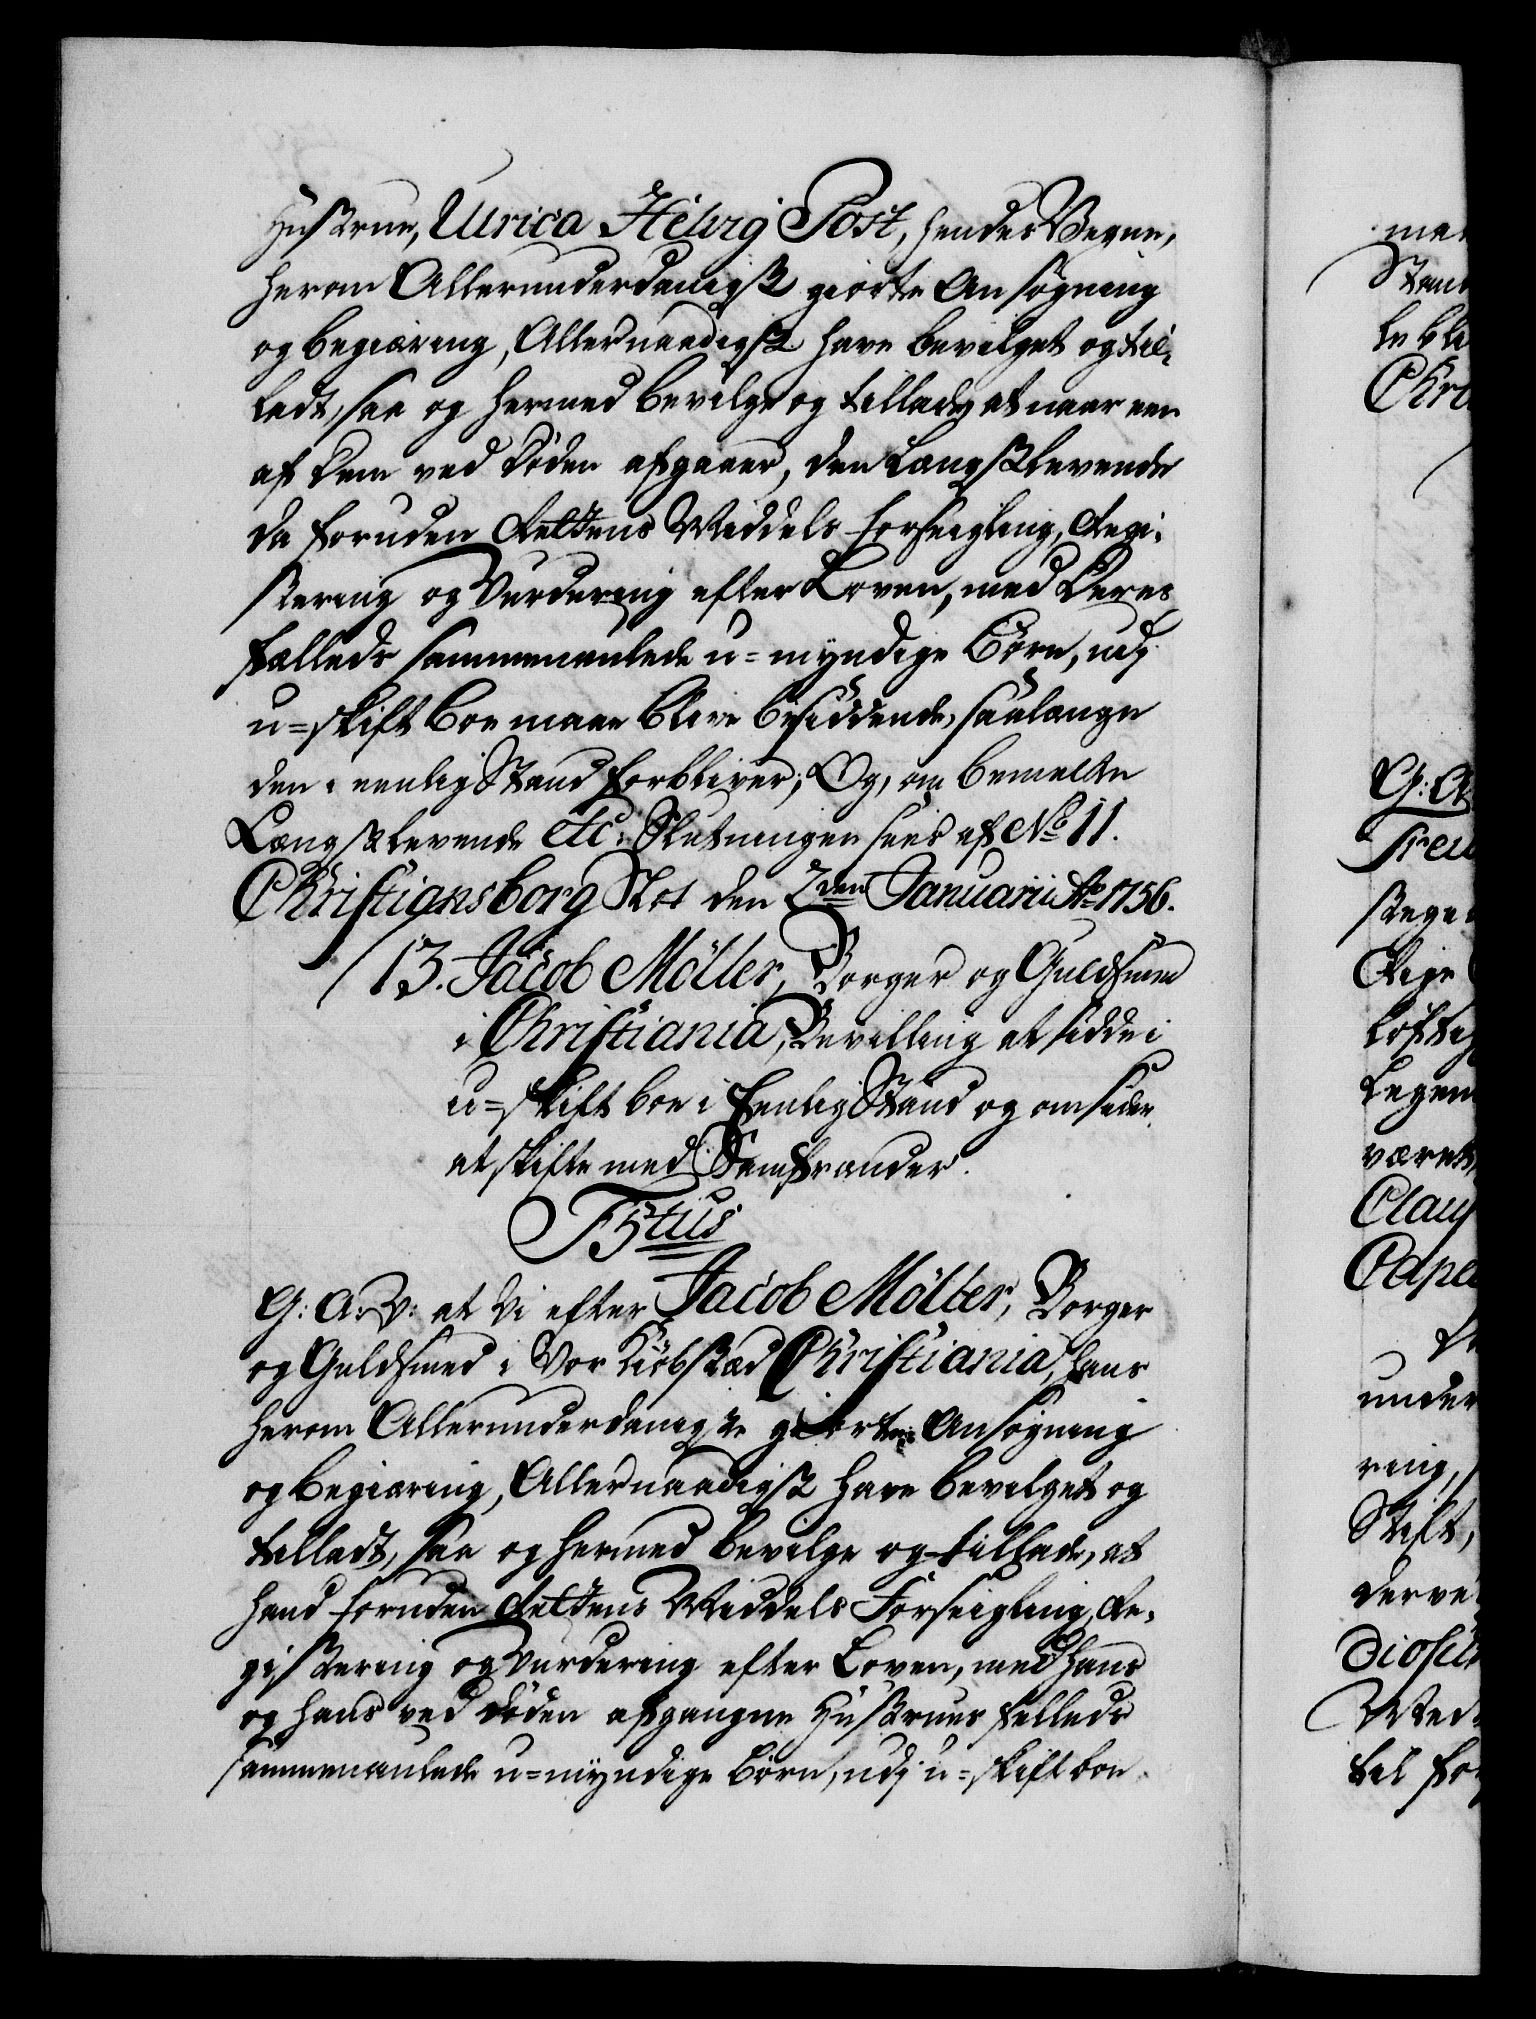 Hustrue, Ulrica Helvig Post, hendes Vegne,
herom Allerunderdanigst giorte Ansøgning
og begiæring, Allernaadigst have bevilget og til-
ladt, saa og hermed bevilge og tillade, at naar een
af dem ved Døden afgaaer, den Længstlevende
da foruden Rettens Middels Forseigling, Regi-
strering og Vurdering efter Loven, med Deres
fælleds sammenavlede u=myndige Børn, udj
u=skift boe maae blive besiddende, saalænge
den i eenlig Stand forbliver; Og, om bemelte
Længstlevende etc: Slutningen sees af No 11.
Christiansborg Slot den 2den Januarii Ao 1756.
13. Jacob Möller, Borger og Guldsmed
i Christiania, Bevilling at sidde i
u=skift boe i Eenlig Stand og omsider
at skifte med Samfrænder.
F 5tus
G: A: V: at Vi efter Jacob Möller, Borger
og Guldsmed i Vor Kiøbstæd Christiania, hans
herom Allerunderdanigste giorte Ansøgning
og begiæring, Allernaadigst have bevilget og
tilladt, saa og hermed bevilge og tillade, at
hand foruden Rettens Middels Forseigling, Re-
gistrering og Vurdering efter Loven, med hans
og hans ved døden afgangne Hustrues fælleds
sammenavlede u=myndige børn, udj u=skift boe